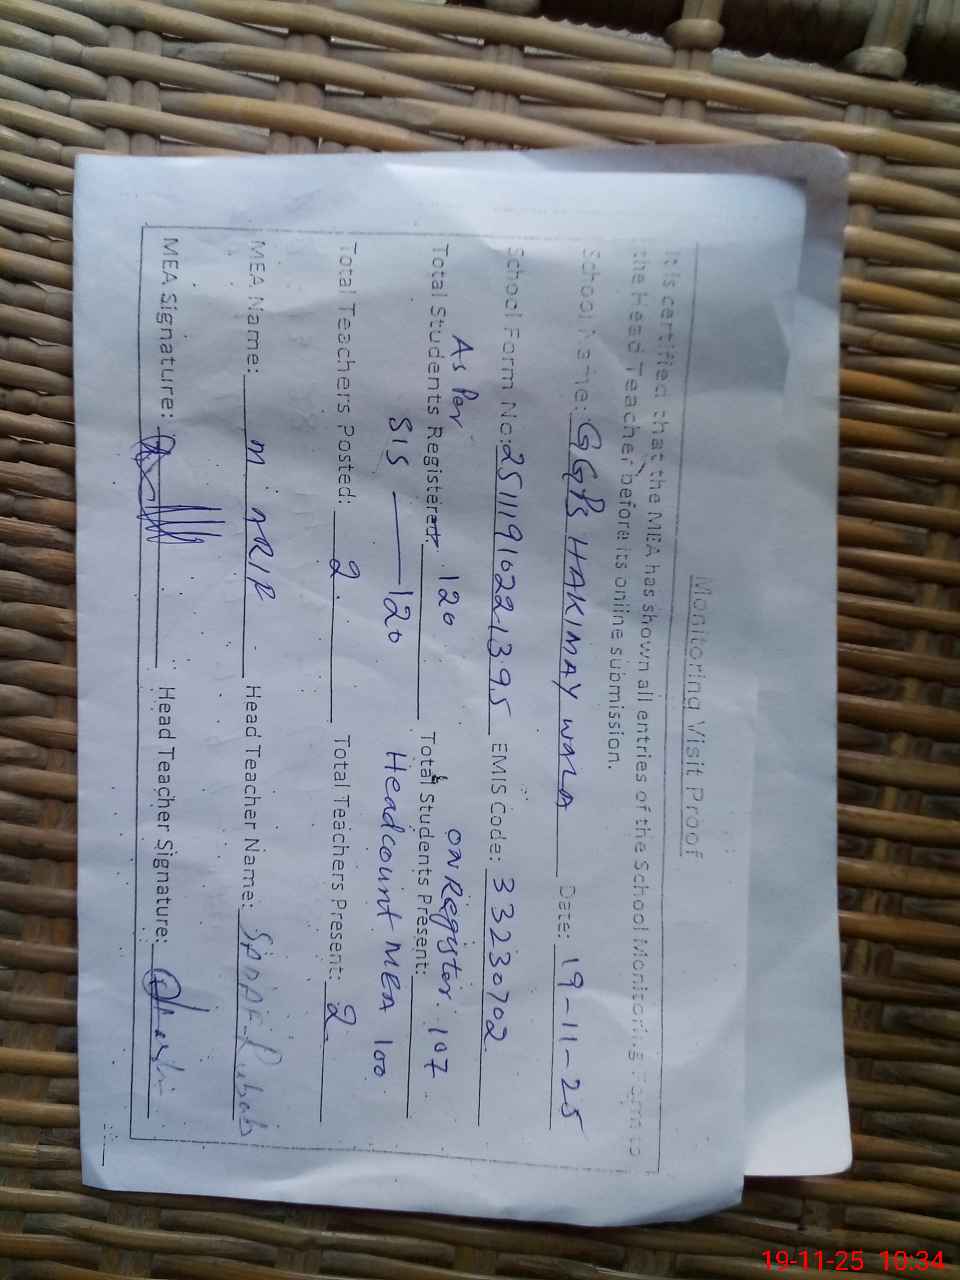 Monitoring Visit Proof
It is certified that the MEA has shown all entries of the School Monitoring Form to
the Head Teacher before its online submission.
School Name: GGPS HAKIMAY WALA Date: 19-11-25
School Form No: 25111910221395 EMIS Code: 33230702
As Per on Register 107
Total Students Registered: 120 Total Students Present:
SIS — 120 Headcount MEA 100
Total Teachers Posted: 2. Total Teachers Present: 2
MEA Name: M Head Teacher Name: SADAF Rubab
MEA Signature: Head Teacher Signature:
19-11-25 10:34